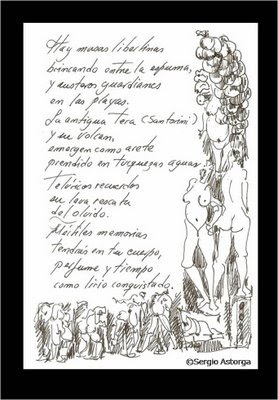 Hay musas libertinas
brincando entre la espuma,
y austeros guardianes
en las playas.
La antigua Tera (Santorini)
y su volcán,
emergen como arete
prendido en turquezas aguas.
Telúricos recuerdos
su lava rescata
del olvido.
Móbiles memorias
tendrás en tu cuerpo,
perfume y tiempo
como lirio conquistado.
©Sergio Astorga